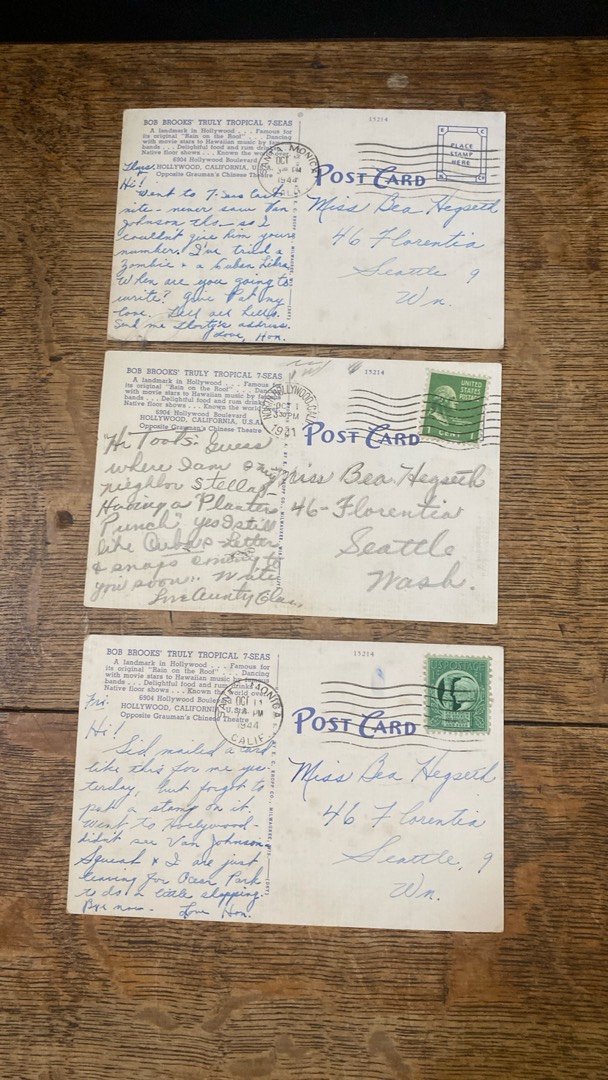 BOB BROOKS' TRULY TROPICAL 7-SEAS
A landmark in Hollywood . . . Famous for
its original "Rain on the Roof" . . . Dancing
with movie stars to Hawaiian music by famous
bands . . . Delightful food and rum drinks
Native floor shows . . . Known the world
6904 Hollywood Boulevard
HOLLYWOOD, CALIFORNIA, U.S.A.
Opposite Grauman's Chinese Theatre
Thurs.
Hi!
Went to 7-Seas last
nite - never saw Van
Johnson tho - so I
couldn't give him your
number. I've tried a
Zombie & a Cuban Libra.
When are you going to
write? Give Pat my
love. Tell all hello.
Send me Shorty's address.
Love, Hon.
15214
SANTA MONICA
OCT
PM
1944
CALIF.
PLACE
STAMP
HERE
POST CARD
Miss Bea Hegseth
46 Florentia
Seattle 9
Wn.
BOB BROOKS' TRULY TROPICAL 7-SEAS
A landmark in Hollywood . . . Famous for
its original "Rain on the Roof" . . . Dancing
with movie stars to Hawaiian music by famous
bands . . . Delightful food and rum drinks
Native floor shows . . . Known the world
6904 Hollywood Boulevard
HOLLYWOOD, CALIFORNIA, U.S.A.
Opposite Grauman's Chinese Theatre
Hi Toots: Guess
where I am & my
neighbor Stella -
Having a "Planters
Punch" yes I still
like Cuba's - Letter
& snaps coming to
you soon. Write
Love Aunty
15214
HOLLYWOOD, CALIF.
OCT
PM
UNITED
STATES
POSTAGE
1 CENT 1
POST CARD
Miss Bea Hegseth
46 - Florentia
Seattle
Wash.
BOB BROOKS' TRULY TROPICAL 7-SEAS
A landmark in Hollywood . . . Famous for
its original "Rain on the Roof" . . . Dancing
with movie stars to Hawaiian music by famous
bands . . . Delightful food and rum drinks
Native floor shows . . . Known the world over
6904 Hollywood Boulevard
HOLLYWOOD, CALIFORNIA, U.S.A.
Opposite Grauman's Chinese Theatre
Fri.
Hi!
Sid mailed a card
like this for me yes-
terday, but forgot to
put a stamp on it.
Went to Hollywood -
didn't see Van Johnson.
Squeak & I are just
leaving for Ocean Park
to do a little shopping.
Bye now - Love Hon.
15214
SANTA MONICA
OCT
PM
1944
CALIF.
POST CARD
Miss Bea Hegseth
46 Florentia
Seattle, 9
Wn.